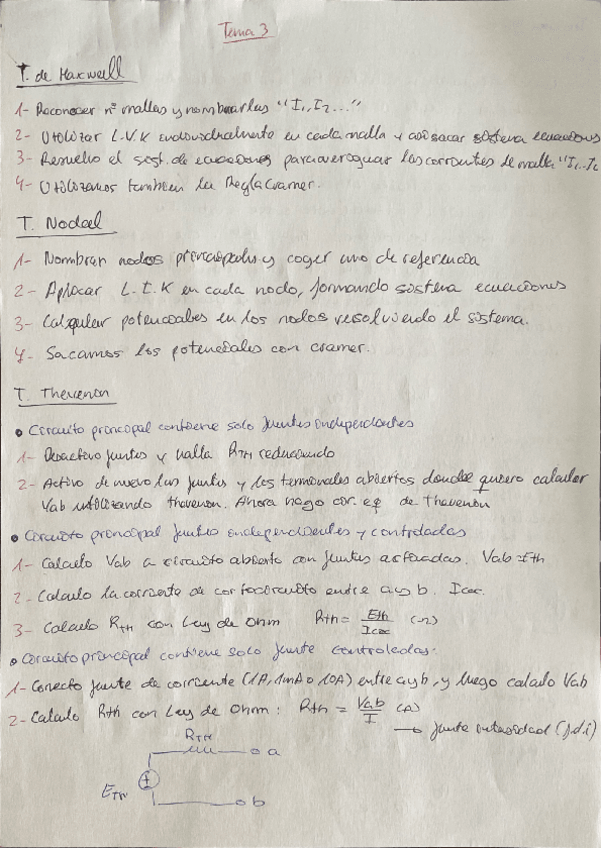 Tema 3
T. de Maxwell
1- Reconocer nº mallas y nombrarlas "I1, I2..."
2- Utilizar L.V.K individualmente en cada malla y así sacar sistema ecuaciones
3- Resuelvo el sist. de ecuaciones para averiguar las corrientes de malla "I1..I2
4- Utilizamos tambien la Regla Cramer.
T. Nodal
1- Nombrar nodos principales y coger uno de referencia
2- Aplicar L.I.K en cada nodo, formando sistema ecuaciones
3- Calcular potenciales en los nodos resolviendo el sistema.
4- Sacamos los potenciales con cramer.
T. Thevenin
• Circuito principal contiene solo fuentes independientes
1- Desactivo fuentes y halla RTH reduciendo
2- Activo de nuevo las fuentes y los terminales abiertos donde quiero calcular
Vab utilizando thevenin. Ahora hago cir. eq de Thevenin
• Circuito principal fuentes independientes y controladas
1- Calculo Vab a circuito abierto con fuentes activadas. Vab = Eth
2- Calculo la corriente de cortocircuito entre a y b. Icoc.
3- Calculo RTH con Ley de Ohm Rth = Eth / Icoc (Ω)
• Circuito principal contiene solo fuente controladas.
1- Conecto fuente de corriente (1A, 1mA o 10A) entre a y b, y luego calculo Vab
2- Calculo Rth con Ley de Ohm: Rth = Vab / I (Ω)
→ fuente intensidad (f.d.i)
RTH
a
ETH
+
b